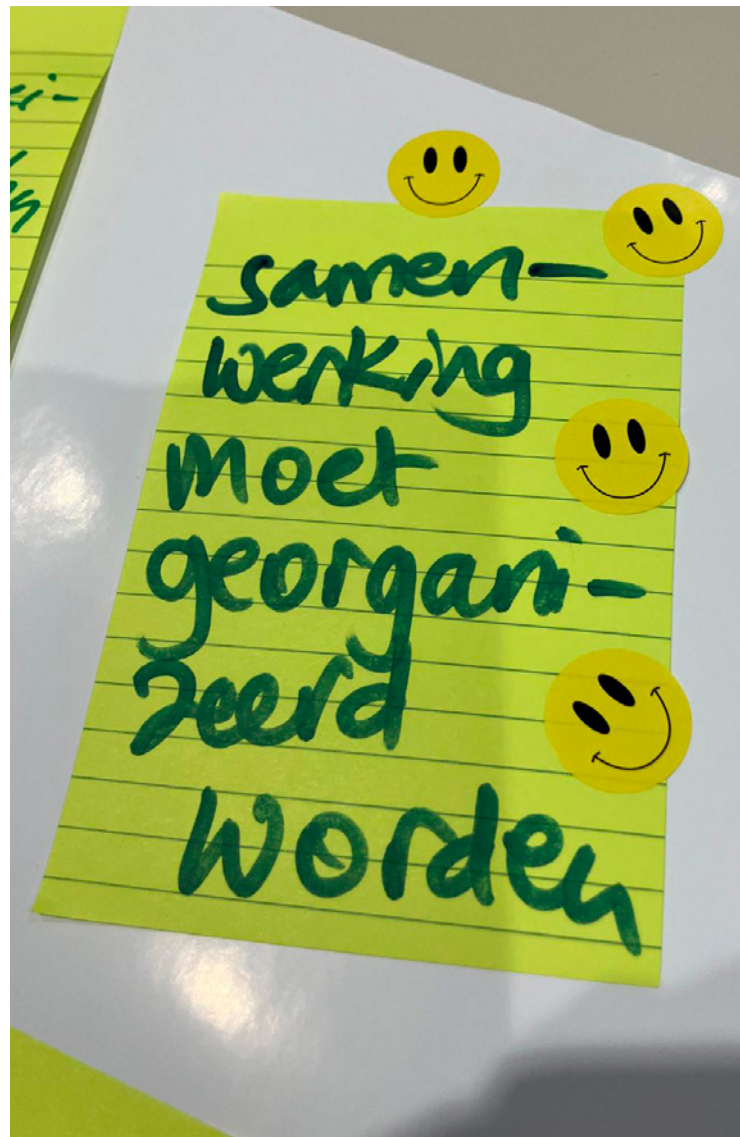 samen-
werking
moet
georgani-
zeerd
worden